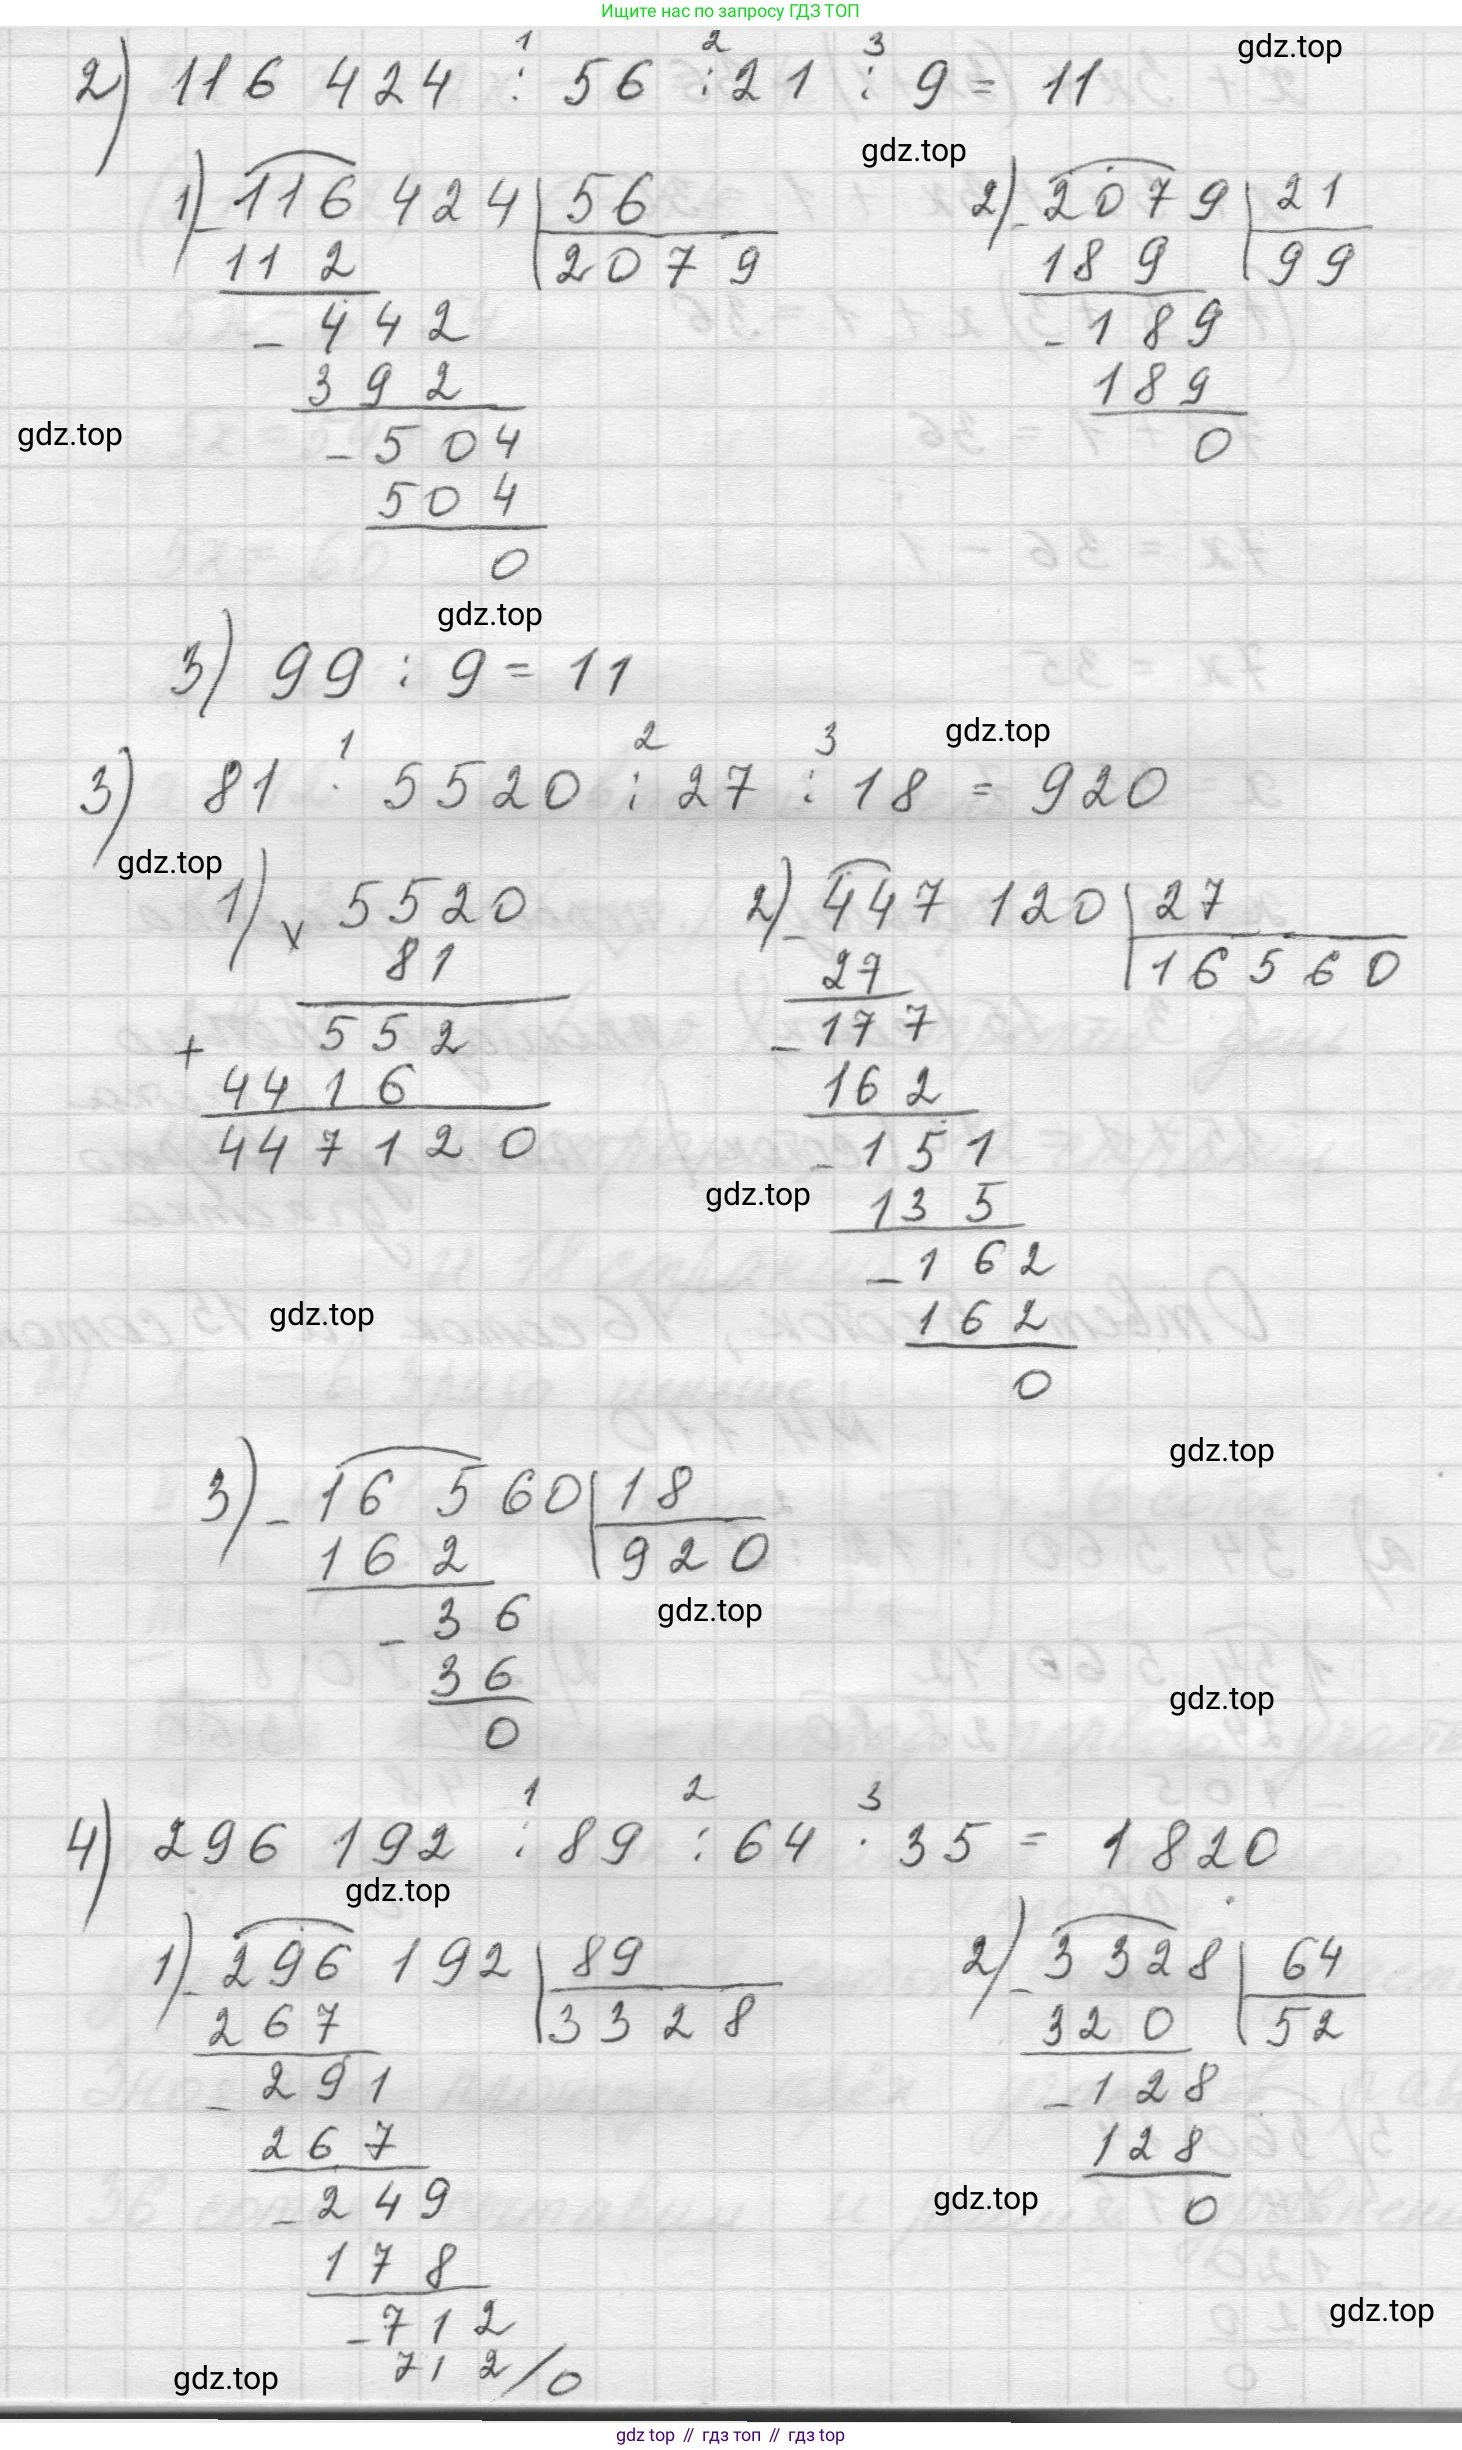 Ищите нас по запросу ГДЗ ТОП
1 2 3
gdz.top
2) 116 424 : 56 : 21 : 9 = 11
gdz.top
1) - 116 424 | 56
2) - 2079 | 21
112
2079
189
99
- 442
- 189
392
189
gdz.top
- 504
0
504
0
gdz.top
3) 99 : 9 = 11
1 2 3
gdz.top
3) 81 · 5520 : 27 : 18 = 920
gdz.top
1) × 5520
2) - 447 120 | 27
81
27
16560
552
- 177
+ 4416
162
447120
- 151
gdz.top
135
- 162
gdz.top
162
0
gdz.top
3) - 16 560 | 18
162
920
- 36
gdz.top
36
gdz.top
0
1 2 3
4) 296 192 : 89 : 64 · 35 = 1820
gdz.top
1) - 296 192 | 89
2) - 3328 | 64
267
3328
320
52
- 291
- 128
267
128
- 249
gdz.top
0
178
- 712
gdz.top
712 / 0
gdz.top
gdz top // гдз топ // gdz top